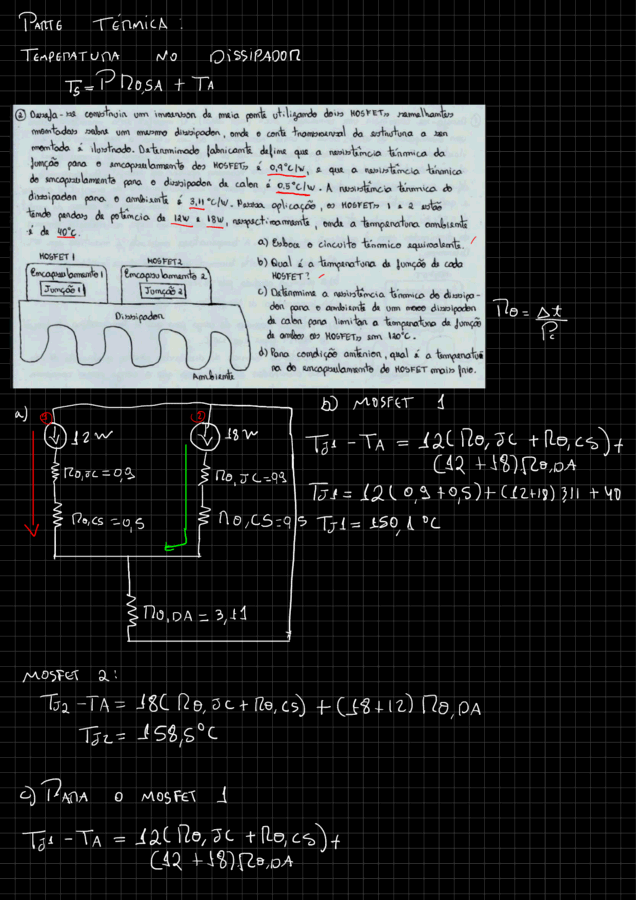 PARTE TÉRMICA:
TEMPERATURA NO DISSIPADOR
Ts = P Rθ,SA + TA
② Deseja-se construir um inversor de meia ponte utilizando dois MOSFETs semelhantes
montados sobre um mesmo dissipador, onde o corte transversal da estrutura a ser
montada é ilustrado. Determinado fabricante define que a resistência térmica da
junção para o encapsulamento dos MOSFETs é 0,9°C/W, e que a resistência térmica
do encapsulamento para o dissipador de calor é 0,5°C/W. A resistência térmica do
dissipador para o ambiente é 3,11°C/W. Nessa aplicação, os MOSFETs 1 e 2 estão
tendo perdas de potência de 12W e 18W, respectivamente, onde a temperatura ambiente
é de 40°C.
a) Esboce o circuito térmico equivalente.
b) Qual é a temperatura de junção de cada
MOSFET?
c) Determine a resistência térmica do dissipa-
dor para o ambiente de um novo dissipador
de calor para limitar a temperatura de junção
de ambos os MOSFETs em 120°C.
d) Para condição anterior, qual é a temperatu
ra do encapsulamento do MOSFET mais frio.
MOSFET 1 MOSFET 2
Encapsulamento 1 Encapsulamento 2
Junção 1 Junção 2
Dissipador
Ambiente
Rθ = Δt / Pc
a)
① 12W ② 18W
Rθ,JC = 0,9 Rθ,JC = 0,9
Rθ,CS = 0,5 Rθ,CS = 0,5
Rθ,DA = 3,11
b) MOSFET 1
TJ1 - TA = 12(Rθ,JC + Rθ,CS) +
(12 + 18)Rθ,DA
TJ1 = 12(0,9 + 0,5) + (12+18) 3,11 + 40
TJ1 = 150,1 °C
MOSFET 2:
TJ2 - TA = 18(Rθ,JC + Rθ,CS) + (18+12) Rθ,DA
TJ2 = 158,5°C
c) PARA O MOSFET 1
TJ1 - TA = 12(Rθ,JC + Rθ,CS) +
(12 + 18)Rθ,DA